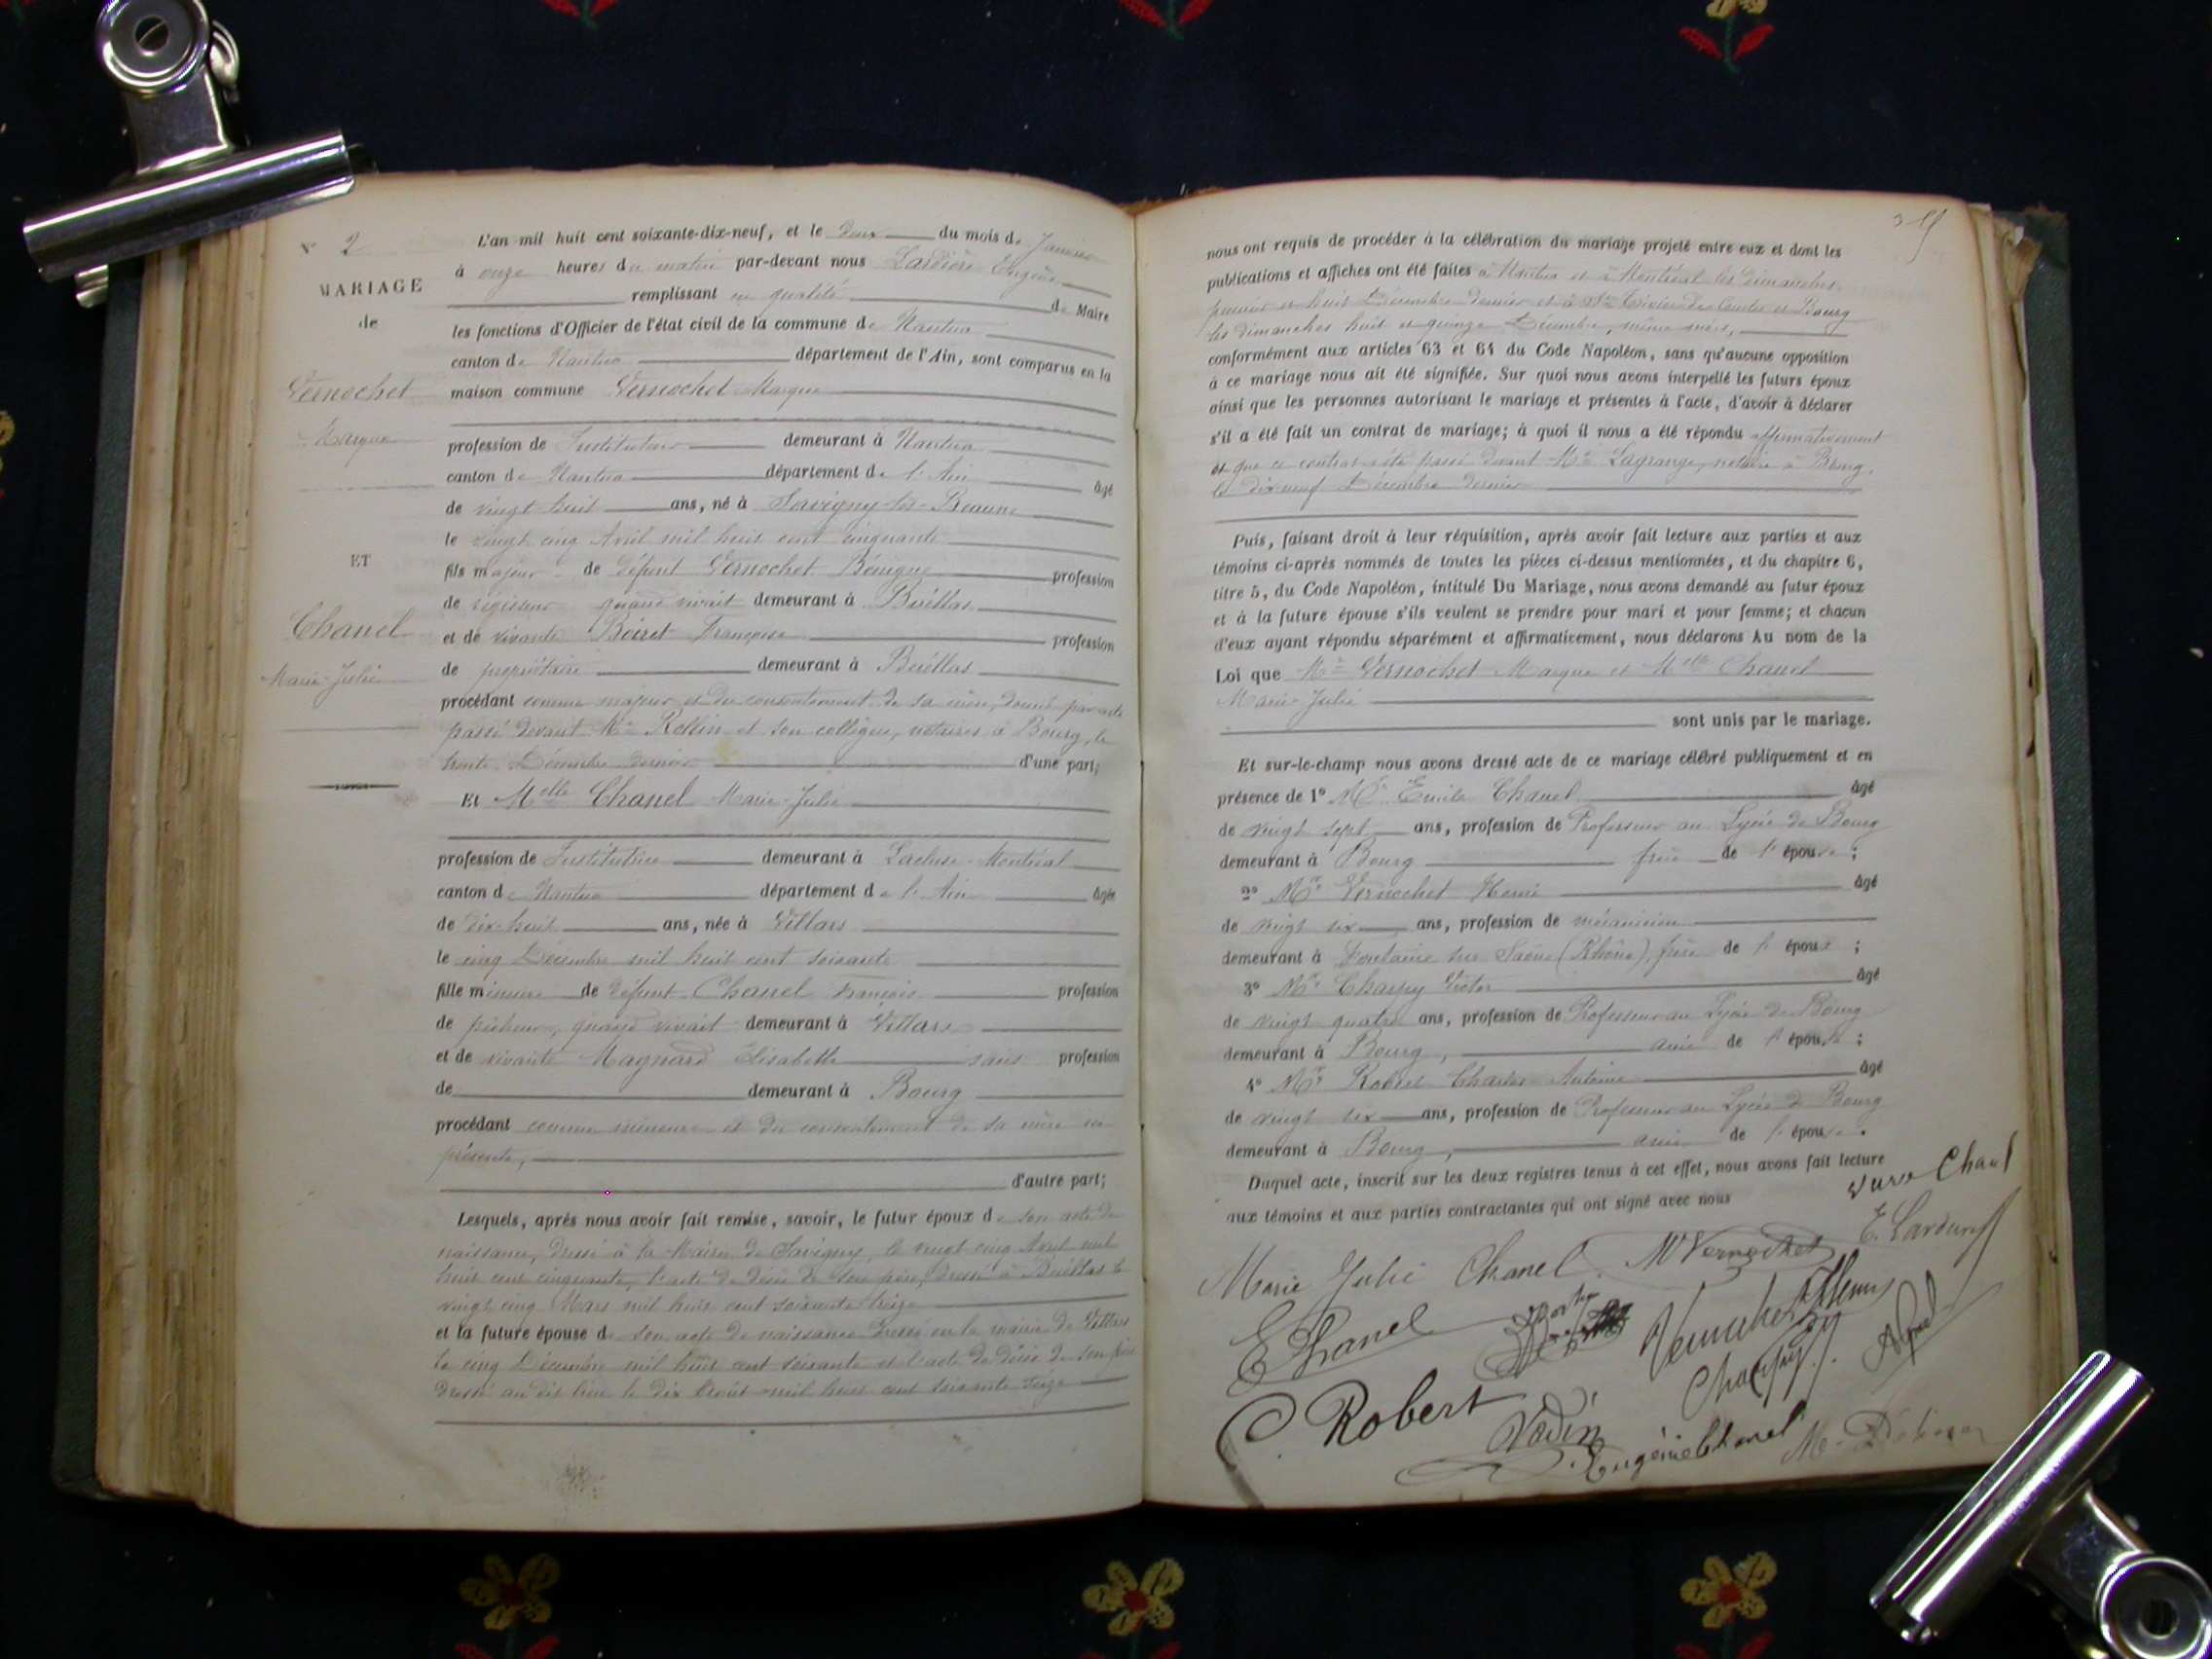 N° 2
MARIAGE
de
Vernochet
Marque
ET
Chanel
Marie-Julie
L'an mil huit cent soixante-dix-neuf, et le deux du mois de Janvier
à onze heures du matin par-devant nous Lardière Eugène
remplissant en qualité de Maire
les fonctions d'Officier de l'état civil de la commune de Nantua
canton de Nantua département de l'Ain, sont comparus en la
maison commune Vernochet Marque
profession de Instituteur demeurant à Nantua
canton de Nantua département de l'Ain âgé
de vingt huit ans, né à Savigny-lès-Beaune
le vingt cinq Avril mil huit cent cinquante
fils majeur de défunt Vernochet Bénigne profession
de régisseur quand vivait demeurant à Buéllas
et de vivante Boiret Françoise profession
de propriétaire demeurant à Buéllas
procédant comme majeur et du consentement de sa mère, donné par acte
passé devant Me Rollin et son collègue, notaires à Bourg, le
trente Décembre dernier d'une part;
Et Melle Chanel Marie-Julie
profession de Institutrice demeurant à Lacluse-Montréal
canton de Nantua département de l'Ain âgée
de dix-huit ans, née à Villars
le cinq Décembre mil huit cent soixante
fille mineure de défunt Chanel François profession
de pêcheur, quand vivait demeurant à Villars
et de vivante Magnard Elisabeth sans profession
de demeurant à Bourg
procédant comme mineure et du consentement de sa mère ici
présente,
d'autre part;
Lesquels, après nous avoir fait remise, savoir, le futur époux de son acte de
naissance, dressé à la Mairie de Savigny, le vingt cinq Avril mil
huit cent cinquante, l'acte de décès de son père, dressé à Buéllas le
vingt cinq Mars mil huit cent soixante treize
et la future épouse de son acte de naissance dressé en la mairie de Villars
le cinq Décembre mil huit cent soixante et l'acte de décès de son père
dressé au dit lieu le dix Août mil huit cent soixante seize
nous ont requis de procéder à la célébration du mariage projeté entre eux et dont les
publications et affiches ont été faites à Nantua et à Montréal les dimanches
premier et huit Décembre dernier et à et Bourg
les dimanches huit et quinze Décembre, même mois,
conformément aux articles 63 et 64 du Code Napoléon, sans qu'aucune opposition
à ce mariage nous ait été signifiée. Sur quoi nous avons interpellé les futurs époux
ainsi que les personnes autorisant le mariage et présentes à l'acte, d'avoir à déclarer
s'il a été fait un contrat de mariage; à quoi il nous a été répondu affirmativement
et que ce contrat a été passé devant Me Lagrange, notaire à Bourg,
le dix neuf Décembre dernier
Puis, faisant droit à leur réquisition, après avoir fait lecture aux parties et aux
témoins ci-après nommés de toutes les pièces ci-dessus mentionnées, et du chapitre 6,
titre 5, du Code Napoléon, intitulé Du Mariage, nous avons demandé au futur époux
et à la future épouse s'ils veulent se prendre pour mari et pour femme; et chacun
d'eux ayant répondu séparément et affirmativement, nous déclarons Au nom de la
Loi que Mr Vernochet Marque et Melle Chanel
Marie-Julie
sont unis par le mariage.
Et sur-le-champ nous avons dressé acte de ce mariage célébré publiquement et en
présence de 1° Mr Emile Chanel âgé
de vingt sept ans, profession de Professeur au Lycée de Bourg
demeurant à Bourg frère de l'épouse ;
2° Mr Vernochet Henri âgé
de vingt six ans, profession de mécanicien
demeurant à Fontaine sur Saône (Rhône), frère de l'époux ;
3° Mr Charpy Victor âgé
de vingt quatre ans, profession de Professeur au Lycée de Bourg
demeurant à Bourg, ami de l'épouse ;
4° Mr Robert Charles Antoine âgé
de vingt six ans, profession de Professeur au Lycée de Bourg
demeurant à Bourg, ami de l'épouse.
Duquel acte, inscrit sur les deux registres tenus à cet effet, nous avons fait lecture
aux témoins et aux parties contractantes qui ont signé avec nous
Chanel
Marie Julie Chanel M Vernochet E. Lardière
E Chanel Vernochet Henri
Charpy
C. Robert Vadin
Eugénie Chanel